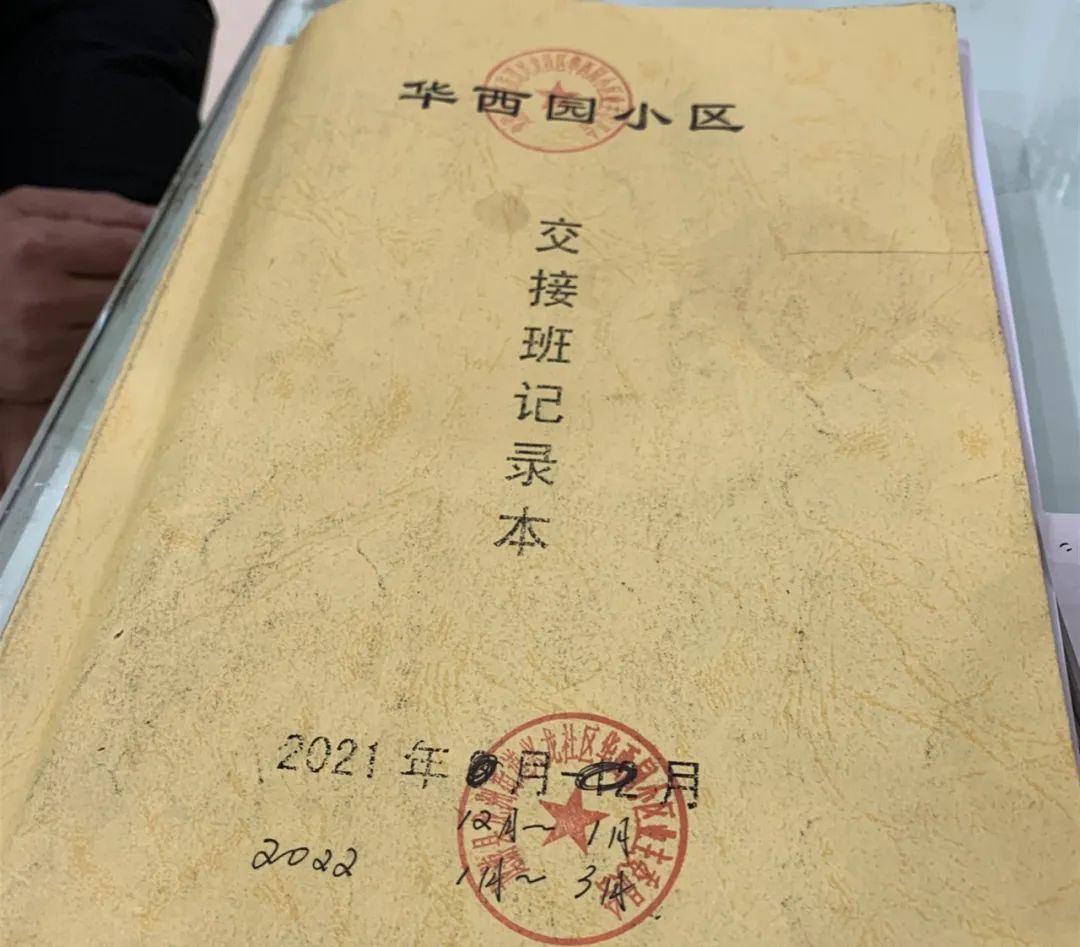 华西园小区
交接班记录本
2021年 月— 月
12月~1月
2022 1月~3月